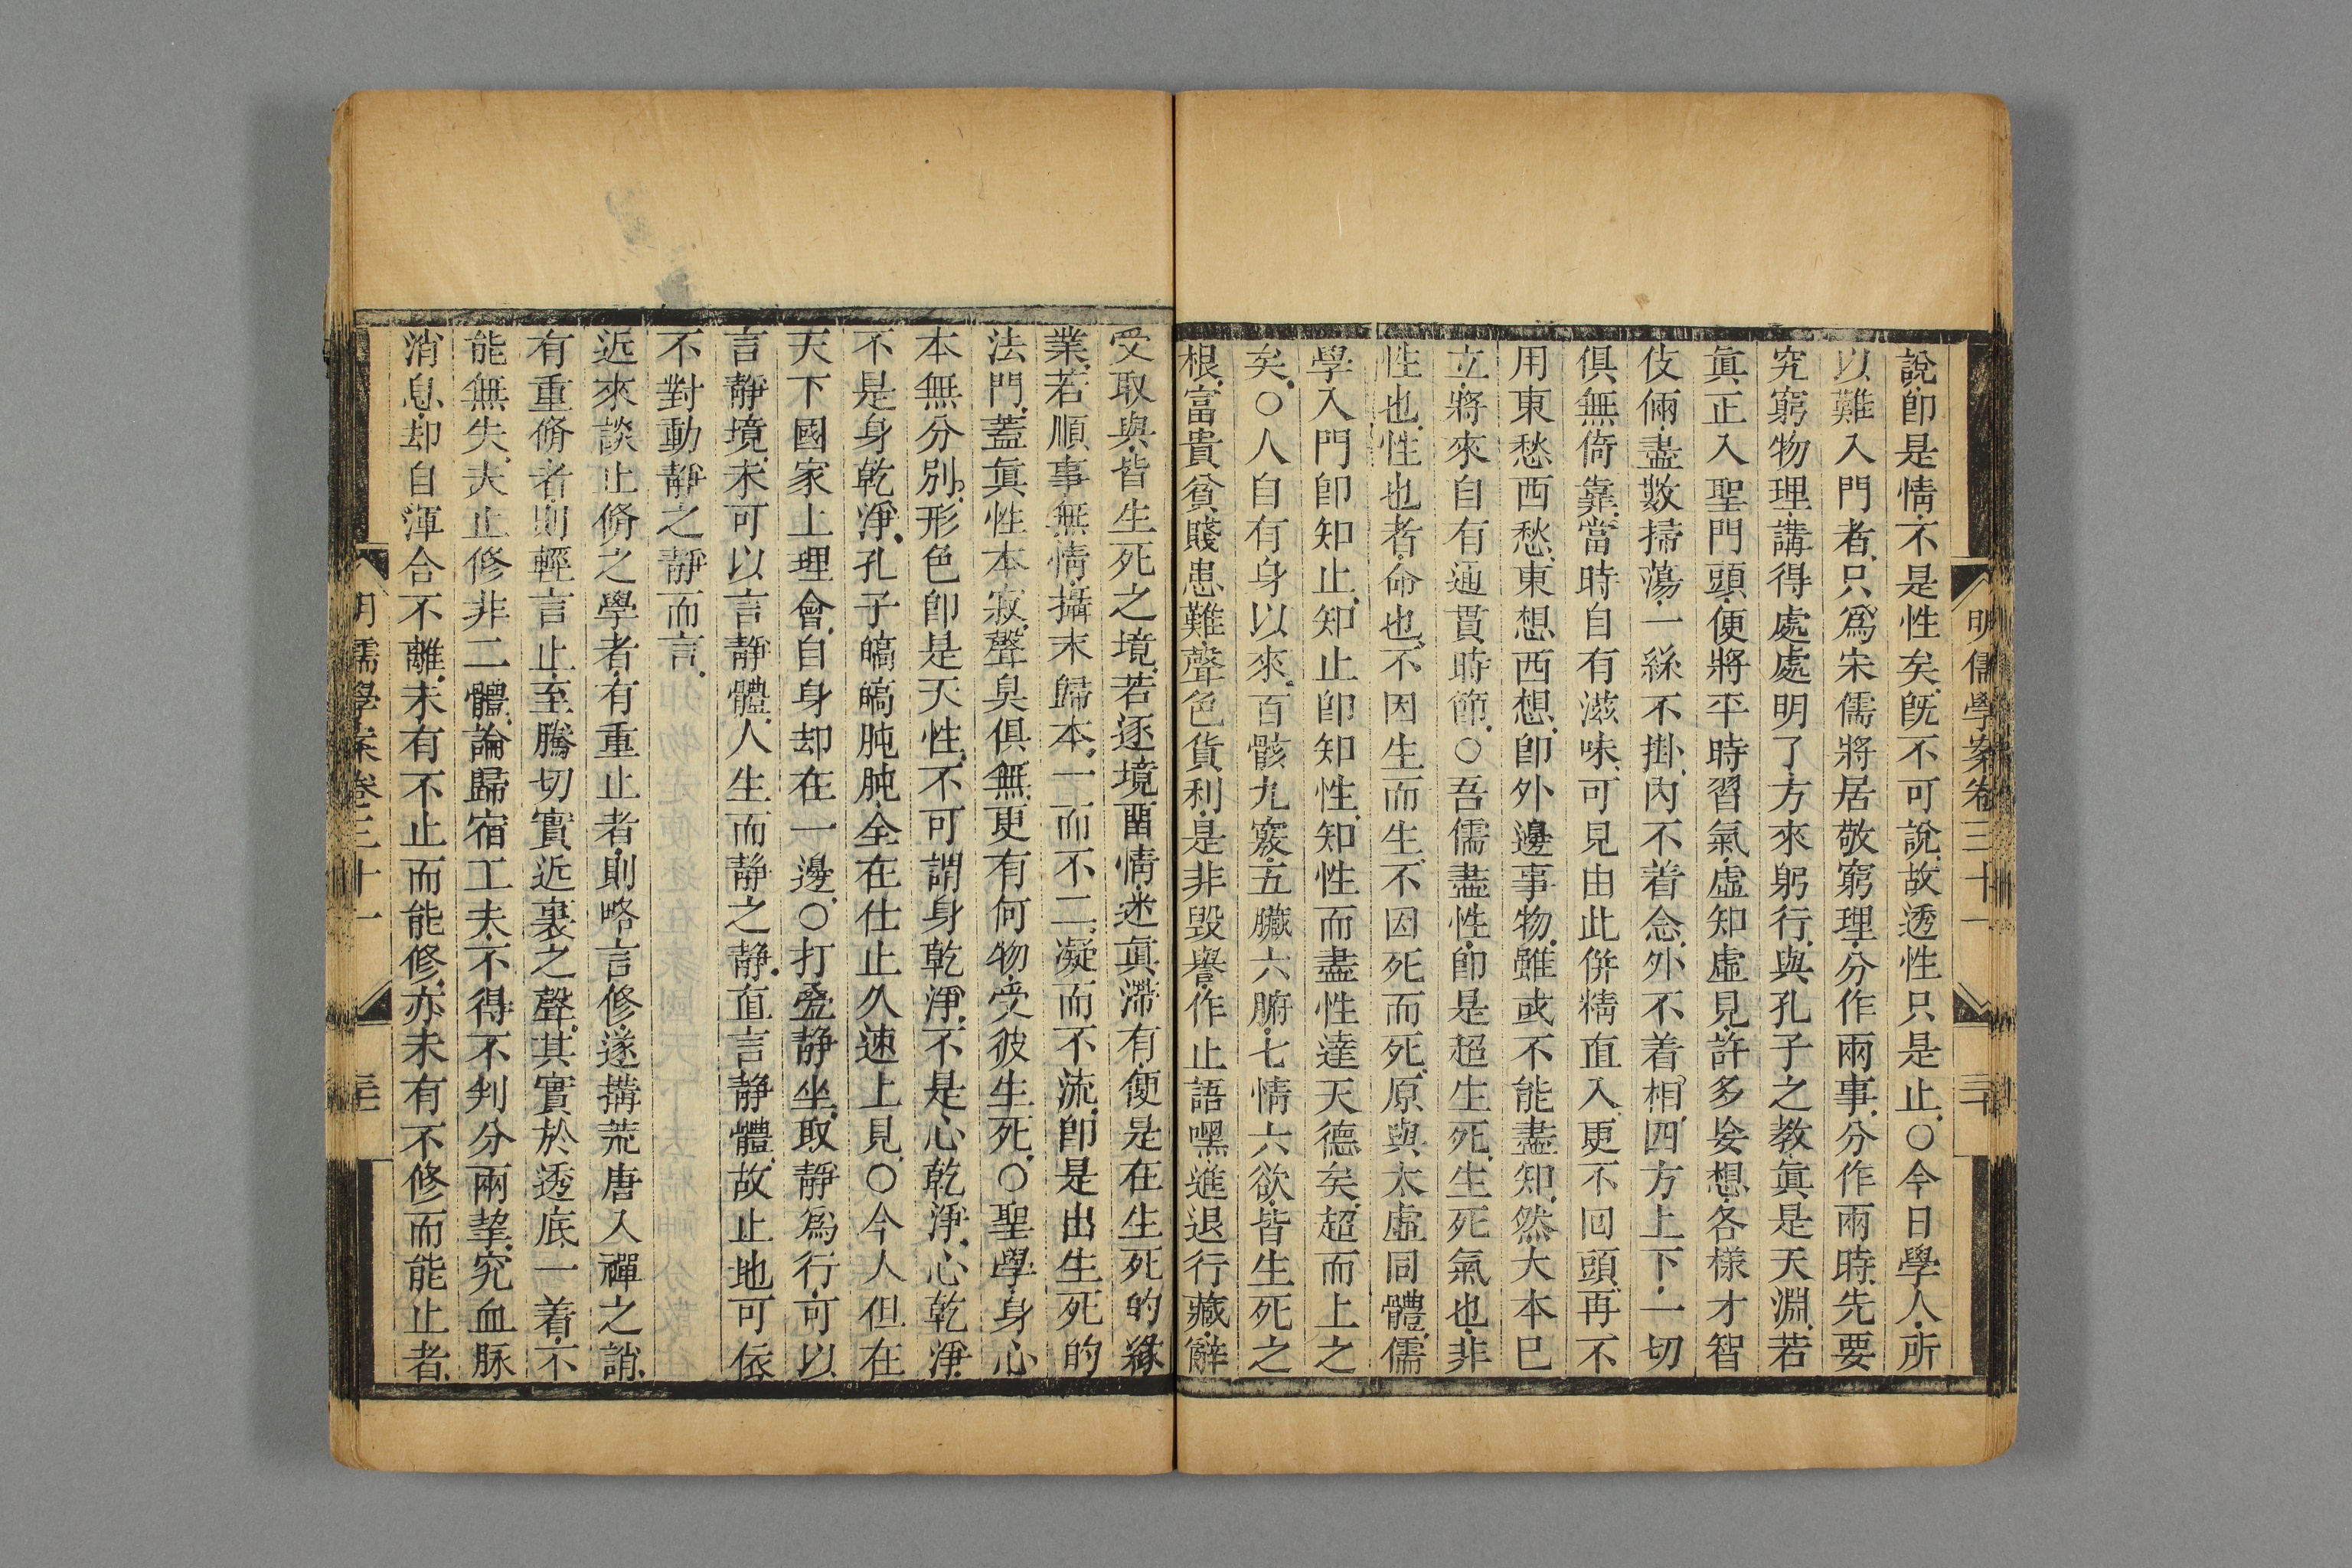 明儒學案卷三十一
三十
說卽是情不是性矣旣不可說故透性只是止○今日學人所
以難入門者只爲宋儒將居敬窮理分作兩事分作兩時先要
究窮物理講得處處明了方來躬行與孔子之教眞是天淵若
眞正入聖門頭便將平時習氣虛知虛見許多妄想各樣才智
伎倆盡數掃蕩一絲不掛內不着念外不着相四方上下一切
俱無倚靠當時自有滋味可見由此併精直入更不回頭再不
用東愁西愁東想西想卽外邊事物雖或不能盡知然大本已
立將來自有通貫時節○吾儒盡性卽是超生死生死氣也非
性也性也者命也不因生而生不因死而死原與太虛同體儒
學入門卽知止知止卽知性知性而盡性達天德矣超而上之
矣○人自有身以來百骸九竅五臟六腑七情六欲皆生死之
根富貴貧賤患難聲色貨利是非毀譽作止語嘿進退行藏辭
受取與皆生死之境若逐境留情迷眞滯有便是在生死的緣
業若順事無情攝末歸本一而不二凝而不流卽是出生死的
法門蓋眞性本寂聲臭俱無更有何物受彼生死○聖學身心
本無分別形色卽是天性不可謂身乾淨不是心乾淨心乾淨
不是身乾淨孔子皜皜肫肫全在仕止久速上見○今人但在
天下國家上理會自身却在一邊○打疊靜坐取靜爲行可以
言靜境未可以言靜體人生而靜之靜直言靜體故止地可依
不對動靜之靜而言
近來談止脩之學者有重止者則略言修遂搆荒唐入禪之誚
有重脩者則輕言止至騰切實近裏之聲其實於透底一着不
能無失夫止修非二體論歸宿工夫不得不判分兩挈究血脉
消息却自渾合不離未有不止而能修亦未有不修而能止者
明儒學案卷三十一